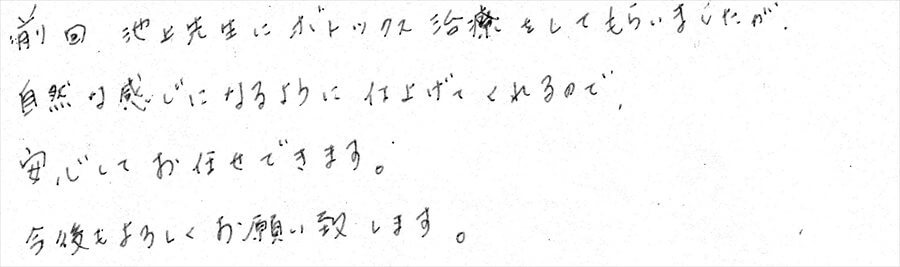 前回 池上先生にボトックス治療をしてもらいましたが、
自然な感じになるように仕上げてくれるので、
安心してお任せできます。
今後もよろしくお願い致します。